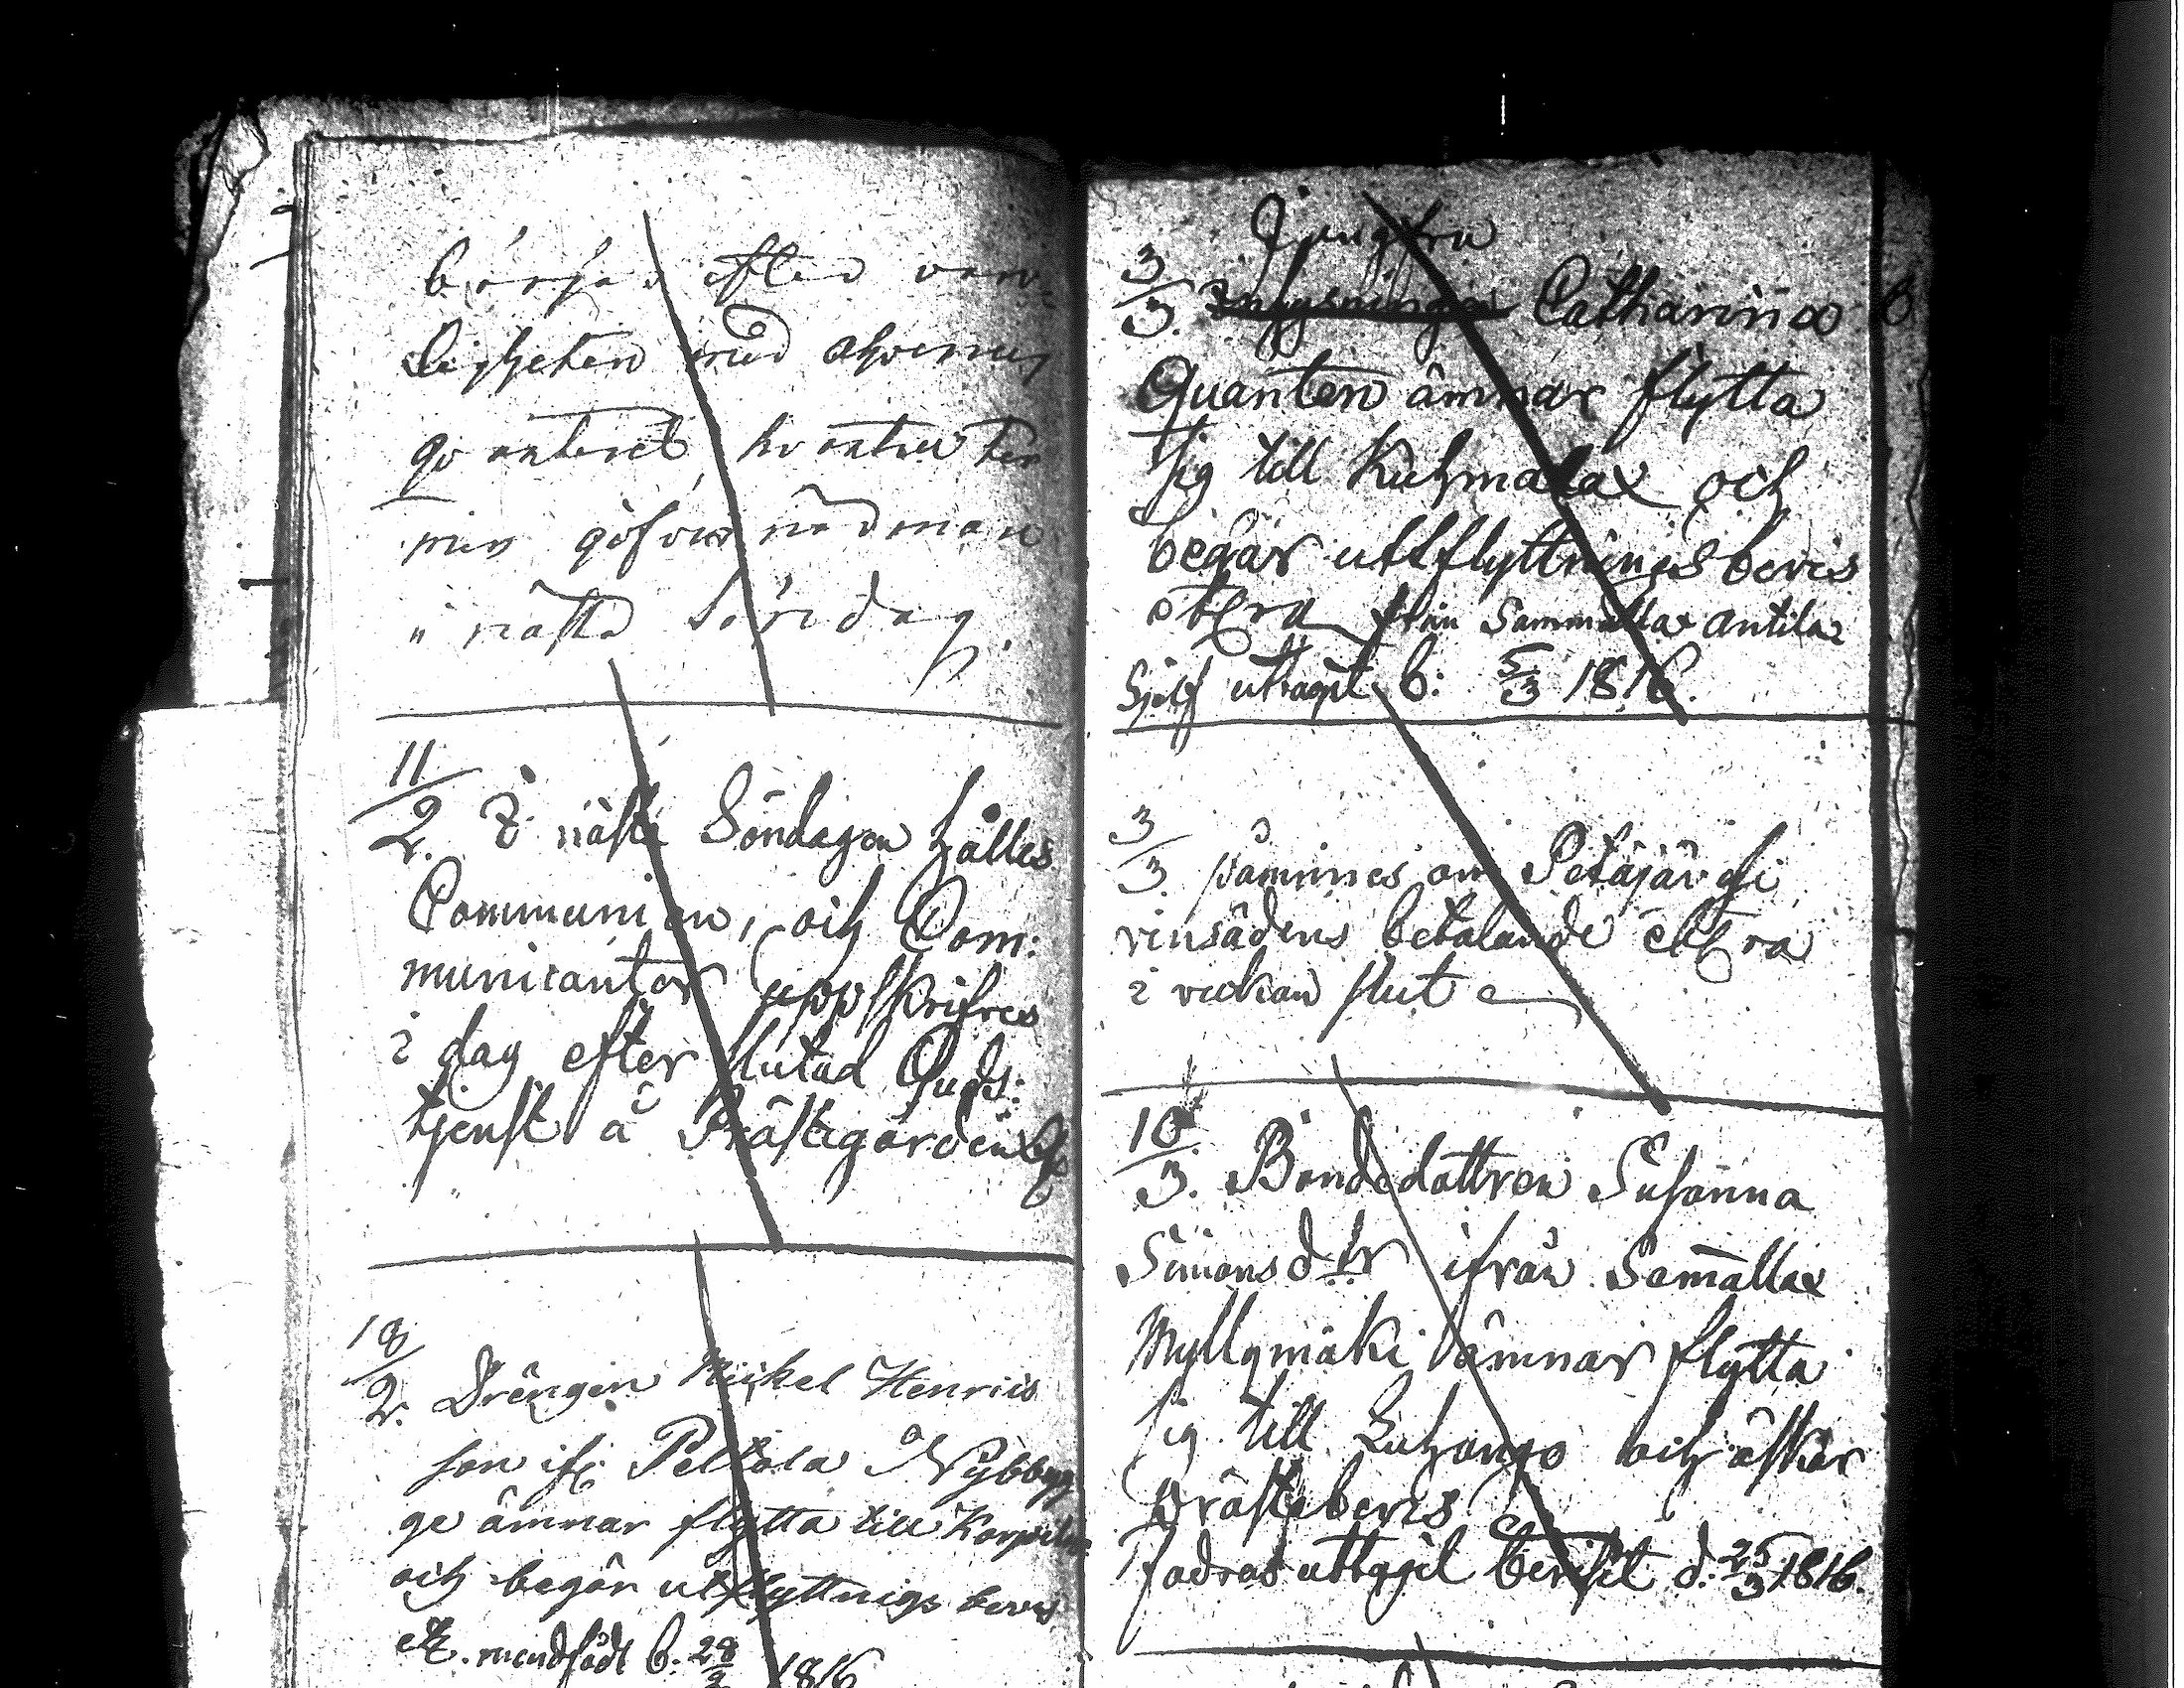 börjas efter van
ligheten med
qvarteret
min nådman
i nästa söndag.
11/2. I nästa Söndagen hålles
Communion, och Com:
municanter uppskrifves
i dag efter slutad Guds:
tjenst å Prästegården
18/2. Drängen Mickel Henrics
son ifr. Peltola Nybbyg
ge ämnar flytta till Korpilax
och begär utflyttnigs bevis
1816
Jungfru
3/3. Catharina
Quanten ämnar flytta
sig till Kuhmalax och
begär uttflyttnings bevis
från Sammallax Antila
Sjelf uttagit b: 5/3 1816.
3/3. påminnes om Petäjävesi
betalande
i veckan slut
10/3. Bondedottren Susanna
Simonsdtr ifrån Sam̄allax
Myllymäki ämnar flytta
sig till Luhango och äskar
prästebevis
Fadren uttagit beviset d. 25/3 1816.